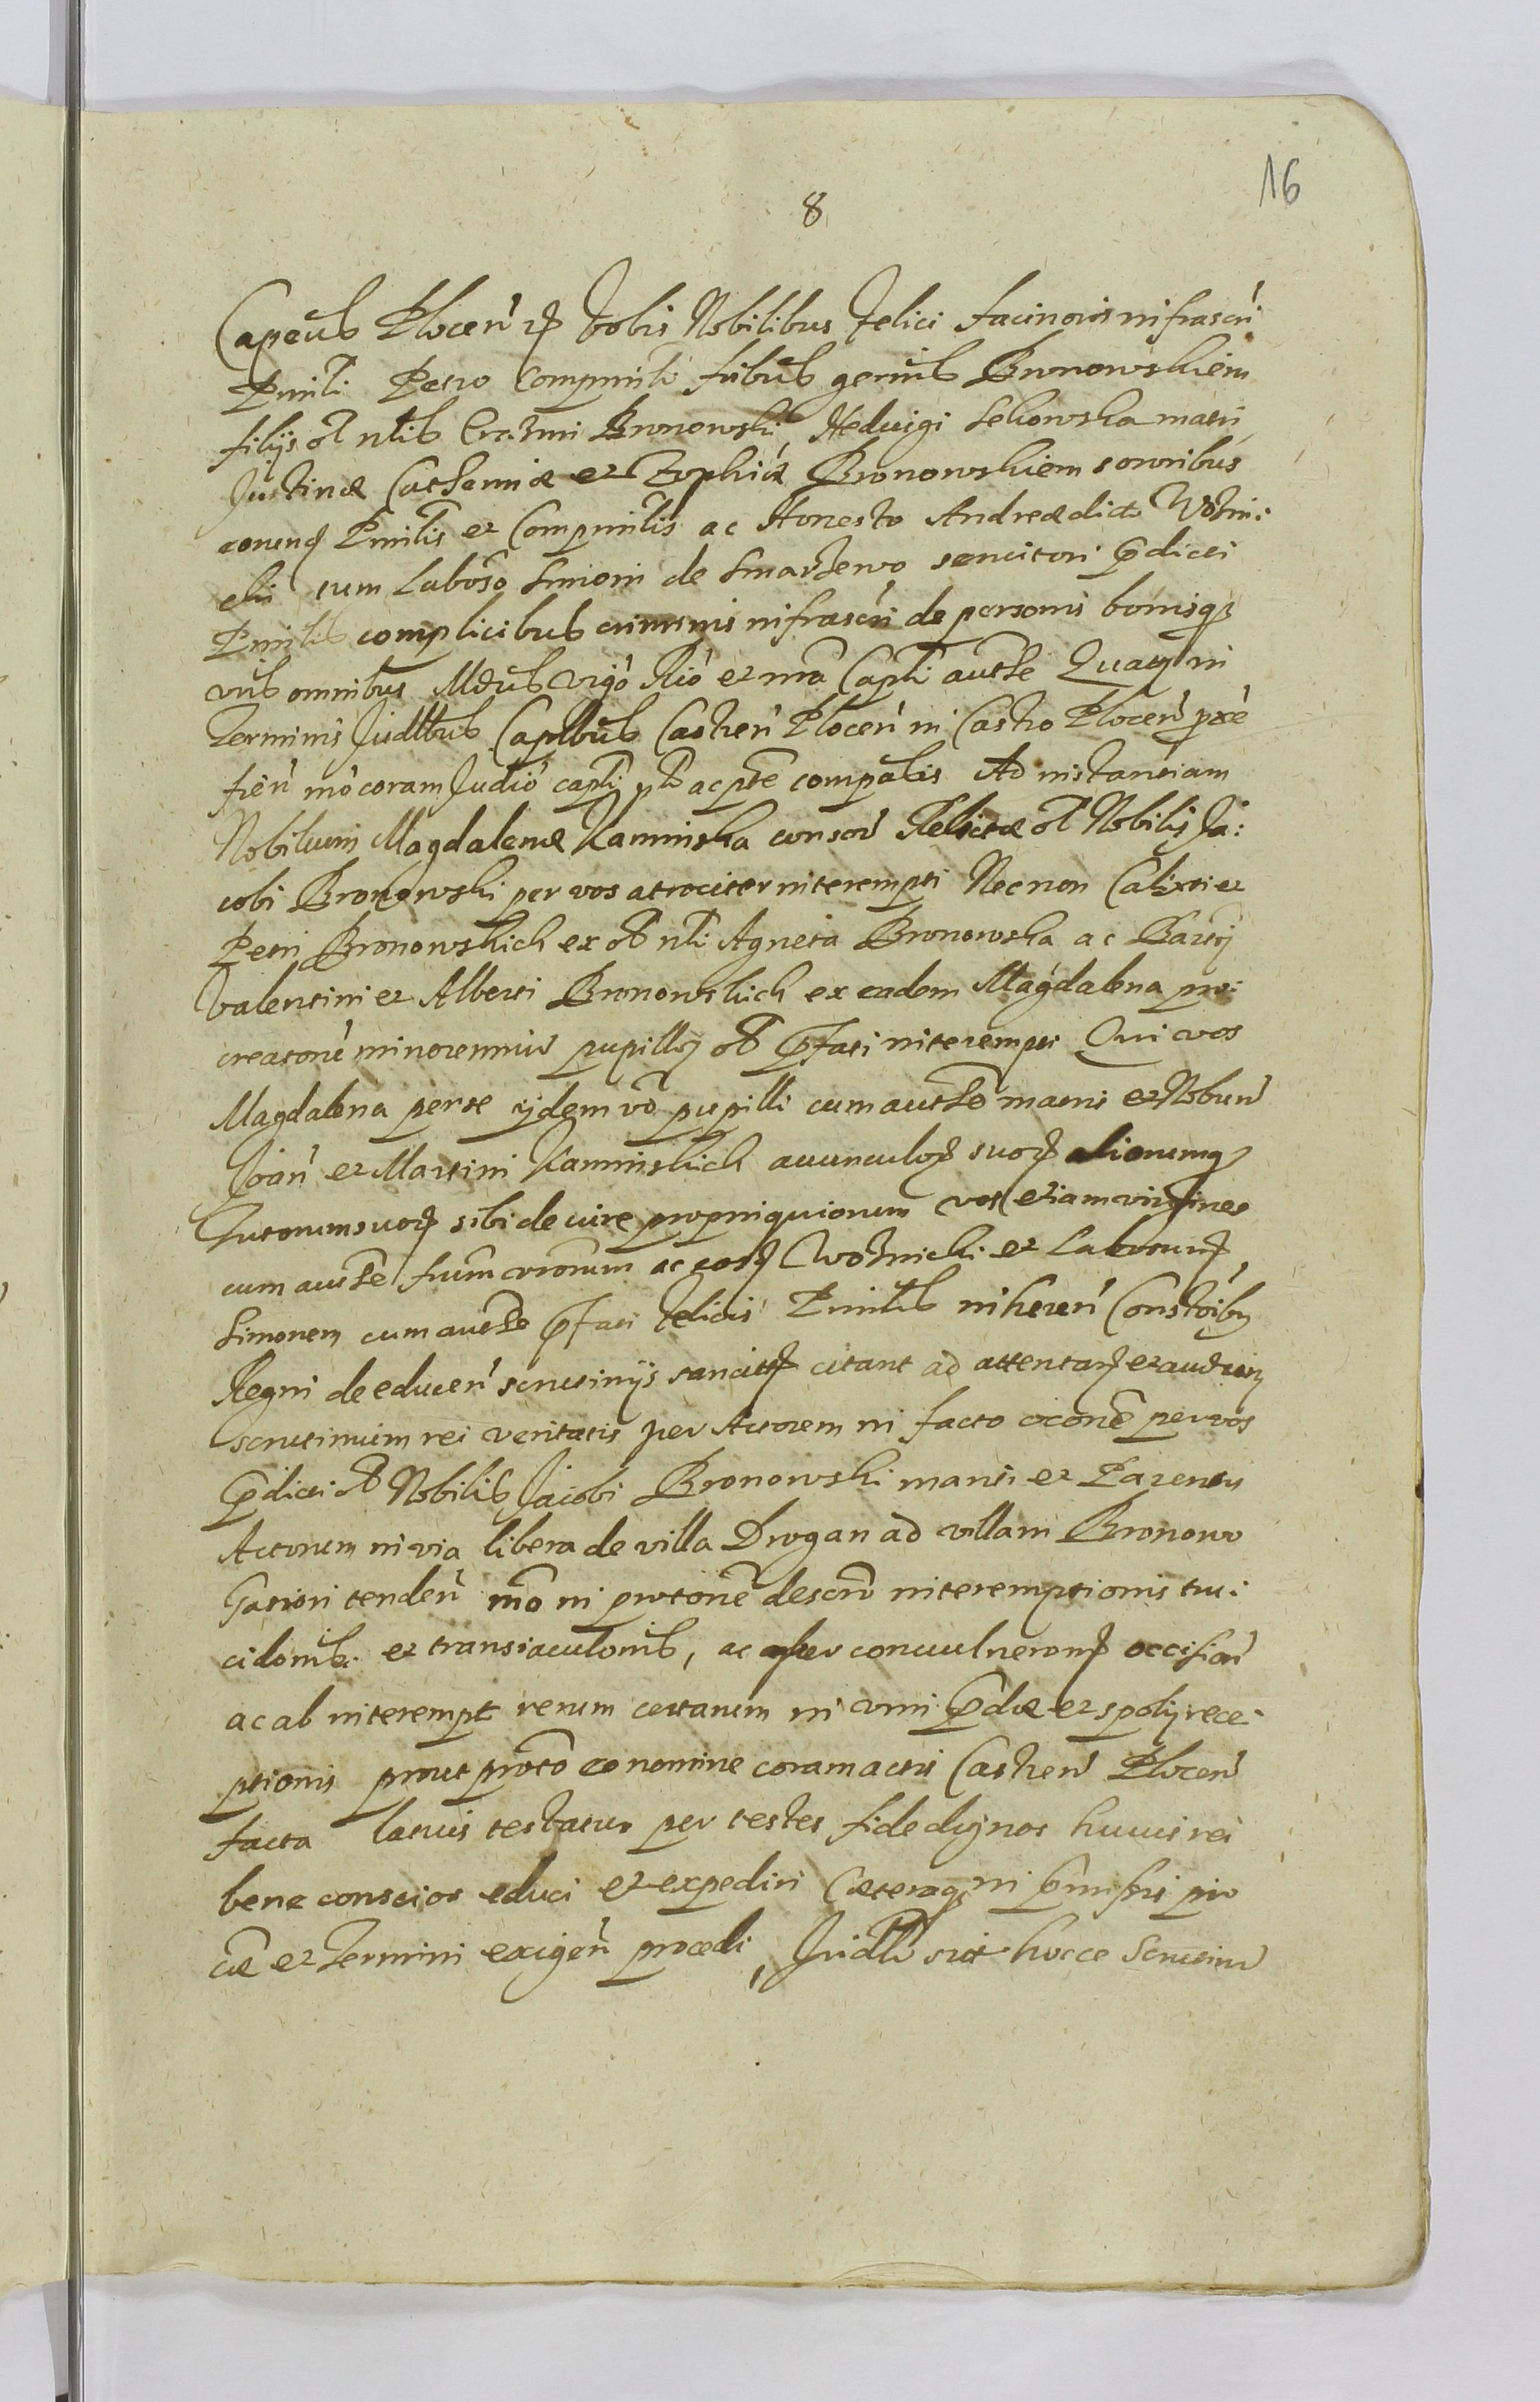 16
8
Capeūs Plocen̄ Vobis Nobilibus Felici facinoris infrascri
Prinli Petro Comprinli frībus germīs Bronowskiem
filijs ol nlis Erasmi Bronowski, Hedvigi Sekowska matri
Justinæ Catherinæ et Zophiæ Bronowskiem sororibus
eorumq Prinlis et Comprinlis ac Honesto Andreæ dicto Woźni:
cki cum Laboso Simoni de Smarzewo servitori prædicti
Prinlis complicibus criminis infrascri de personis bonisq
vris omnibus Mdūs vigō Rió et mā Capli autte Quatȝ in
Terminis Judllbus Capllbus Castren̄ Plocen̄ in Castro Plocen̄ pxē
fien̄ mō coram Judió capli pli ac pte compalis Ad instantiam
Nobilium Magdalenæ Kaminska consor Relictæ ol Nobilis Ja:
cobi Bronowski per vos atrociter interempti Necnon Calixti et
Petri Bronowskich ex ol nli Agneta Bronowska ac Bartȳ
Valentini et Alberti Bronowskich ex eadem Magdalena pro:
creatorū minorenniū pupilloȝ ol præfati interempti Qui vos
Magdalena per se ijdem vō pupilli cum autte matris et Nobiliū
Joān et Martini Kaminskich avunculoȝ suoȝ aliorumq
Tutorum suoȝ sibi de iure propinquiorum vos etiam virgines
cum autte frūm vrorum ac eosȝ Woźnicki et Laboriosȝ
Simonem cum autte præfati Felicis Prinlis inheren̄ Constoibȝ
Regni de educen̄ scrutinijs sancitȝ citant ad attentanȝ et audienȝ
scrutinium rei veritatis per Actorem in facto occonē per vos
prædicti ol Nobilis Jacobi Bronowski mariti et Parentis
Actorum in via libera de villa Drogan ad villam Bronowo
Sariori tenden̄ mō in protonē descrō interemptionis tru:
cidonis et transiaculonis, ac aliter convulneronȝ occision̄
ac ab interempt rerum certarum in vim prædæ et spolij rece:
ptionis prout protō eo nomine coram actis Castren̄ Plocen̄
facta latius testatur per testes fide dignos huius rei
bene conscios educi et expediri Cæteraq in præmissis pro
cæ et Termini exigen̄ procedi, Judlr sitis hocce Scrutiniū